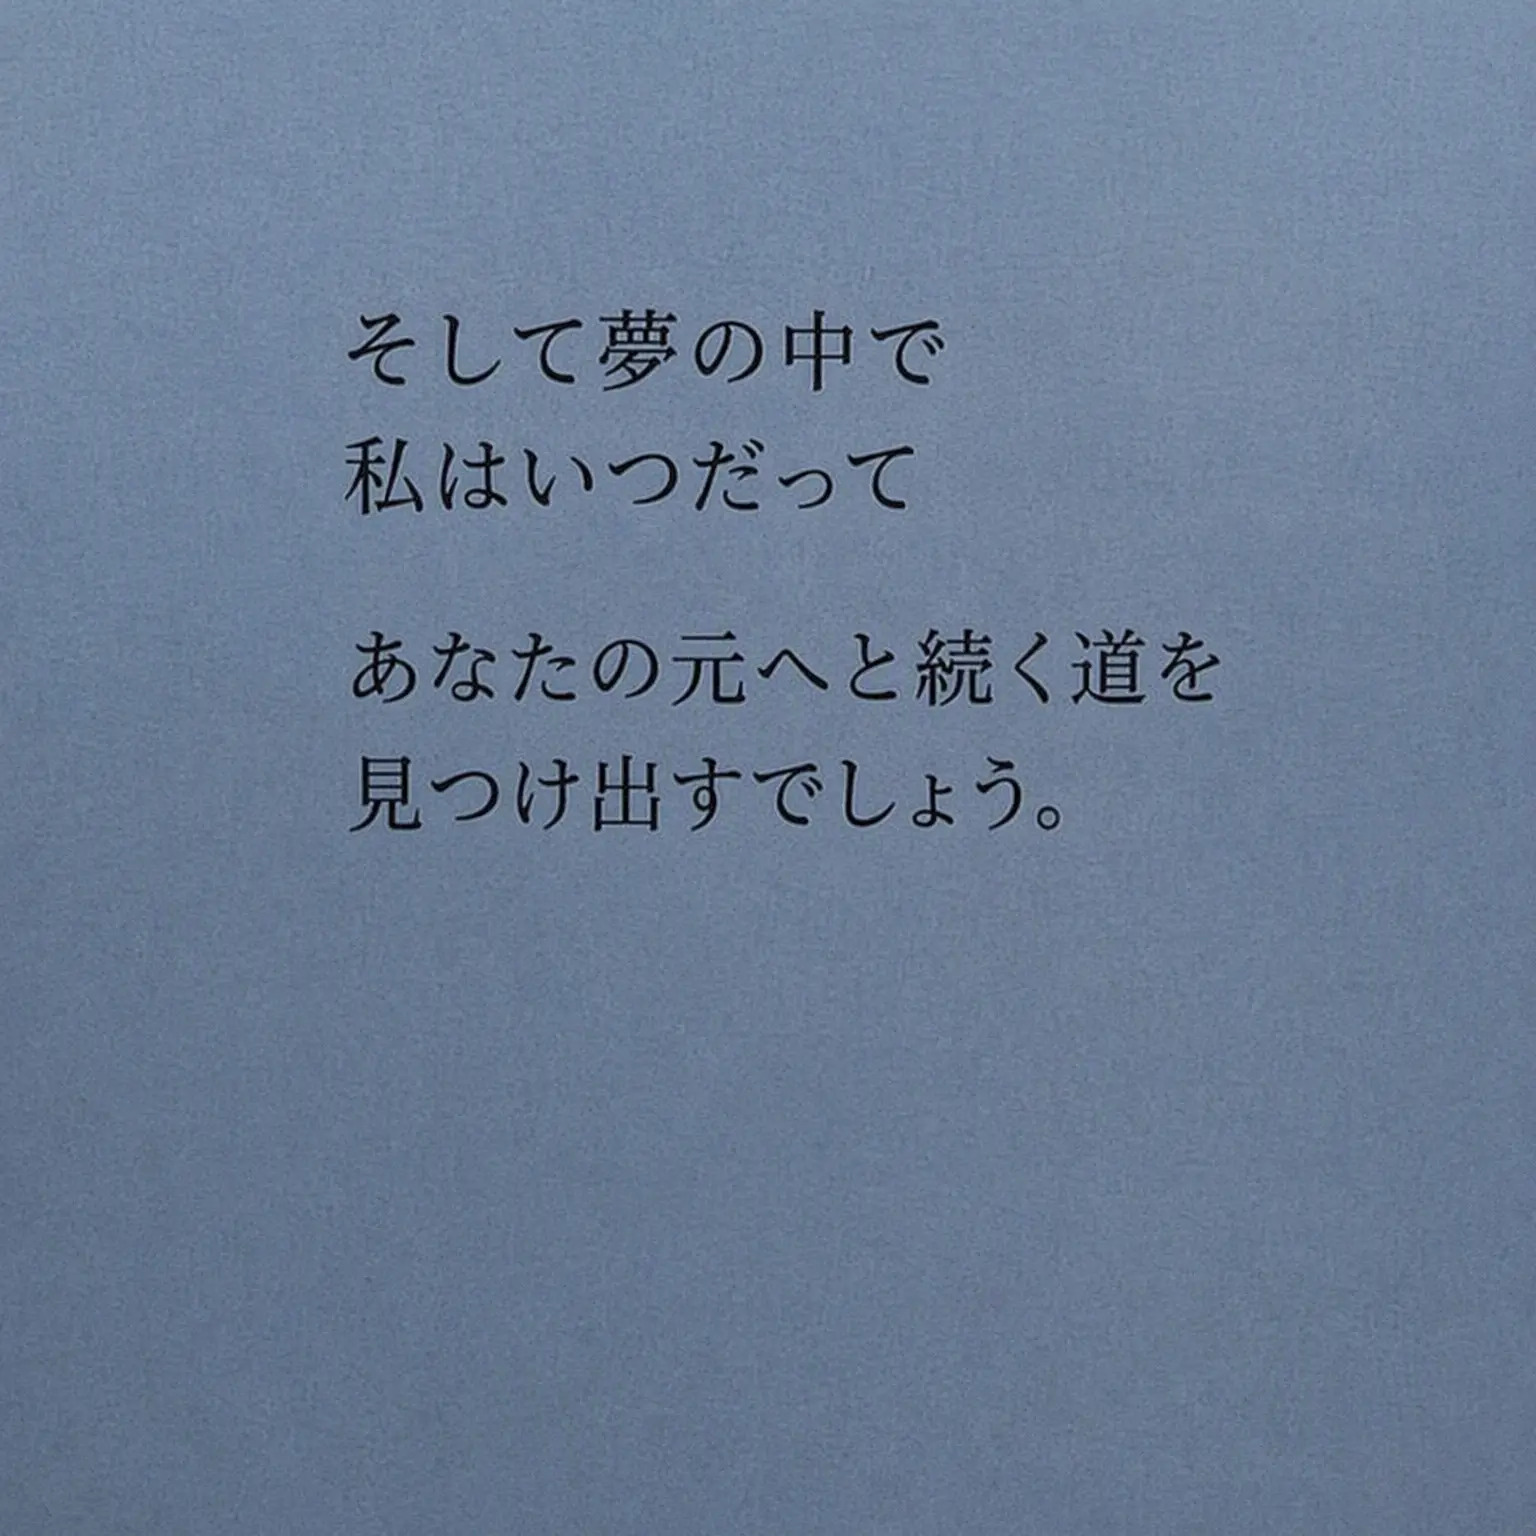 そして夢の中で
私はいつだって
あなたの元へと続く道を
見つけ出すでしょう。